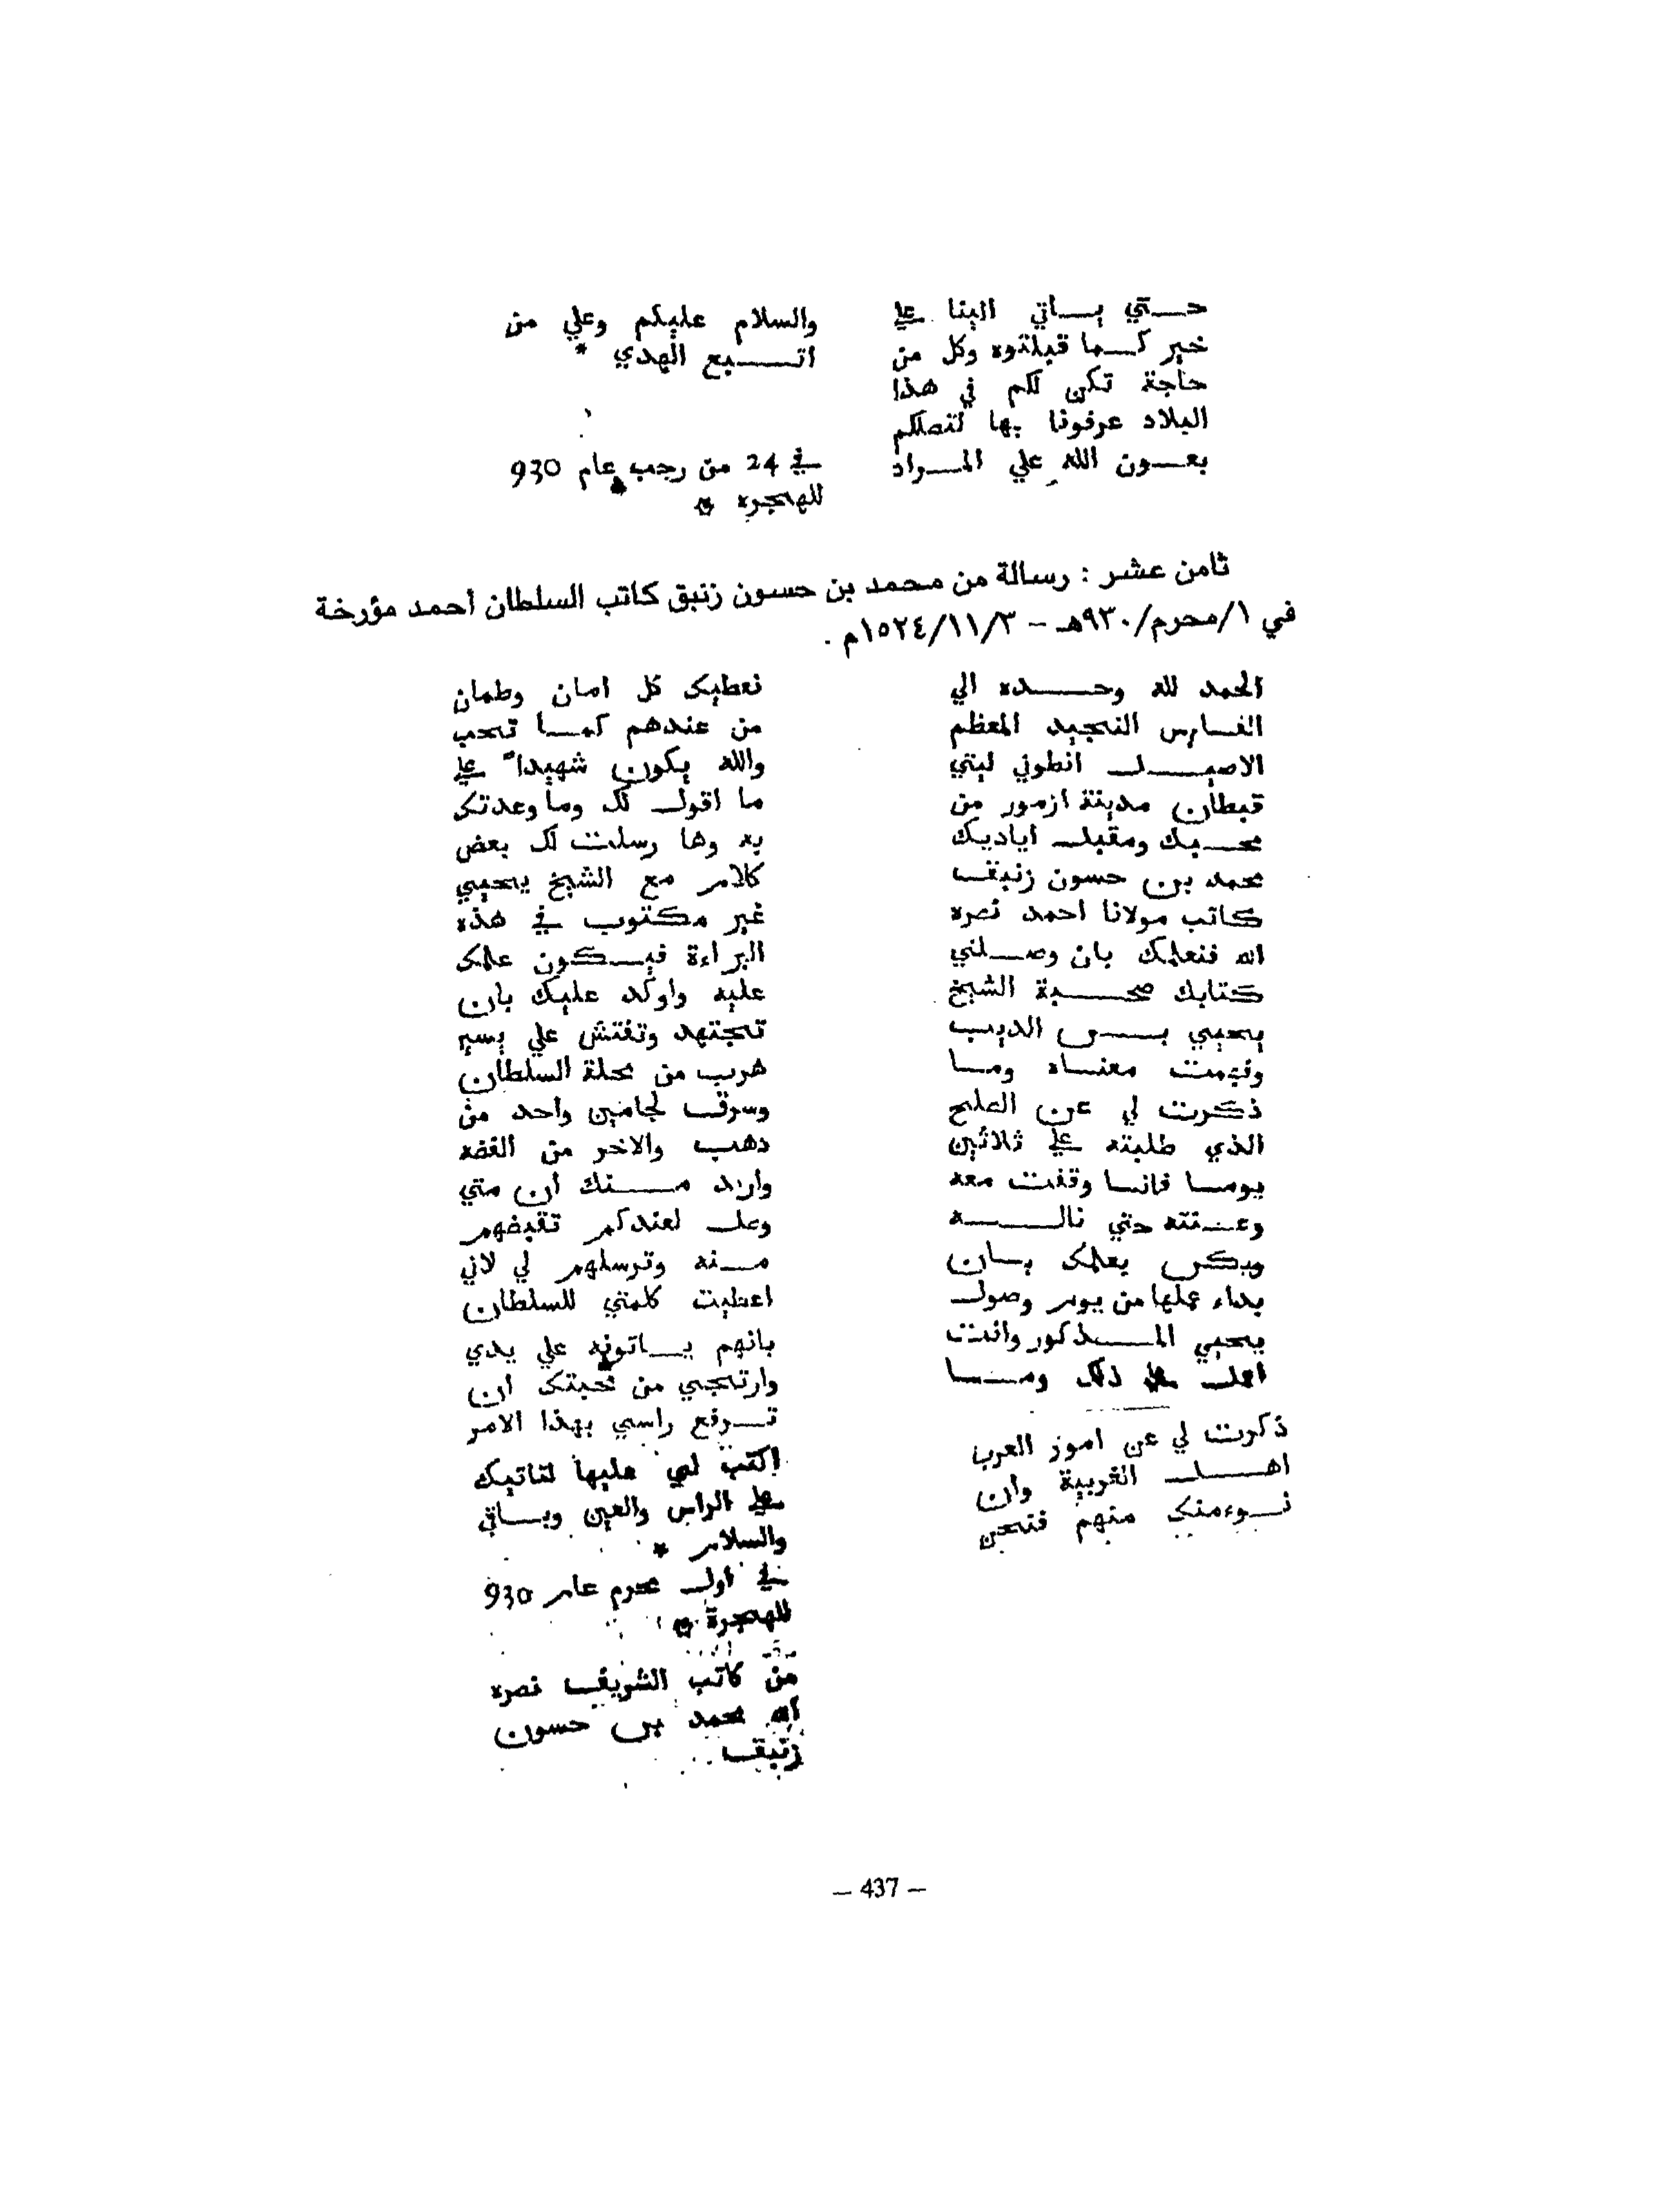 حتي ياتي الينا علي
خير كما قبلتوه وكل من
حاجة تكن لكم في هذا
البلاد عرفونا بها لتصلكم
بعون الله علي المراد
والسلام عليكم وعلي من
اتبع الهدي *
في 24 من رجب عام 930
للهجره *
ثامن عشر : رسالة من محمد بن حسون زنبق كاتب السلطان أحمد مؤرخة
في ١/محرم/٩٣٠هـ - ١٥٢٤/١١/٣م .
الحمد لله وحده الي
الفارس النجيد المعظم
الاصيل انطوني ليتي
قبطان مدينة ازمور من
محبك ومقبل اياديك
محمد بن حسون زنبق
كاتب مولانا احمد نصره
الله فنعلمك بان وصلني
كتابك صحبة الشيخ
يحيي بن الديب
وفهمت معناه وما
ذكرت لي عن الصلح
الذي طلبته علي ثلاثين
يوما فانا وقفت معه
وعنته حتي ناله
ويكن بعلمك بان
بداء عملها من يوم وصول
يحيي المذكور وانت
اعمل علي ذلك وما
ذكرت لي عن امور العرب
اهل الغربية وان
نوءمنك منهم فنحن
نعطيك كل امان وطمان
من عندهم كما تحب
والله يكون شهيداً علي
ما اقول لك وما وعدتك
به وها رسلت لك بعض
كلام مع الشيخ يحيي
غير مكتوب في هذه
البراءة فيكون علمك
عليه واوكد عليك بان
تجتهد وتفتش علي يسير
هرب من محلة السلطان
وسرق لجامين واحد من
دهب والاخر من الفضه
واريد منك ان متي
وصل لعندكم تقبضهم
منه وترسلهم لي لاني
اعطيت كلمتي للسلطان
بانهم ياتونه علي يدي
وارتجي من محبتك ان
ترفع راسي بهذا الامر
اكتب لي عليها لتاتيك
علي الراس والعين وباقي
والسلام *
في اول محرم عام 930
للهجرة *
من كاتب الشريف نصره
الله محمد بن حسون
زنبق
— 437 —